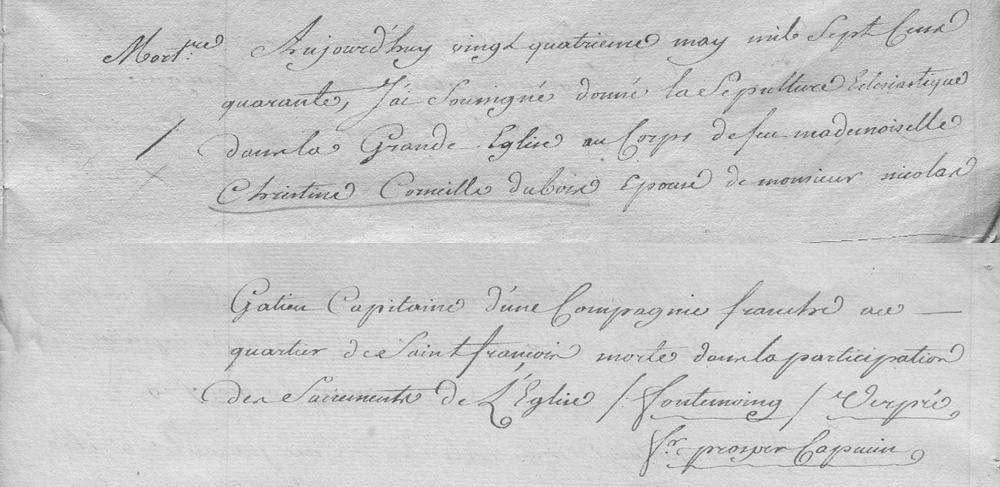 Mort.re Aujourd'huy vingt quatrieme may mil Sept Cens
quarante, J'ai Sousigné donné la Sepulture Eclesiastique
dans la Grande Eglise au Corps de feu mademoiselle
Christine Corneille dubois Epouse de monsieur nicolas
Gatien Capitaine d'une Compagnie franche au
quartier de Saint françois morte dans la participation
des Sacrements de L'Eglise / / Verpré
fr. prosper Capucin